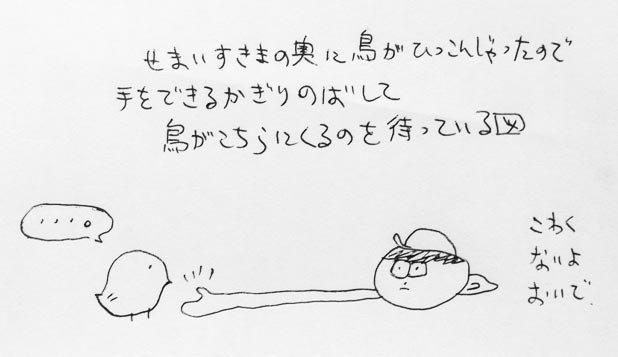 せまいすきまの奥に鳥がひっこんじゃったので
手をできるかぎりのばして
鳥がこちらにくるのを待っている図
・・・。
こわく
ないよ
おいで.